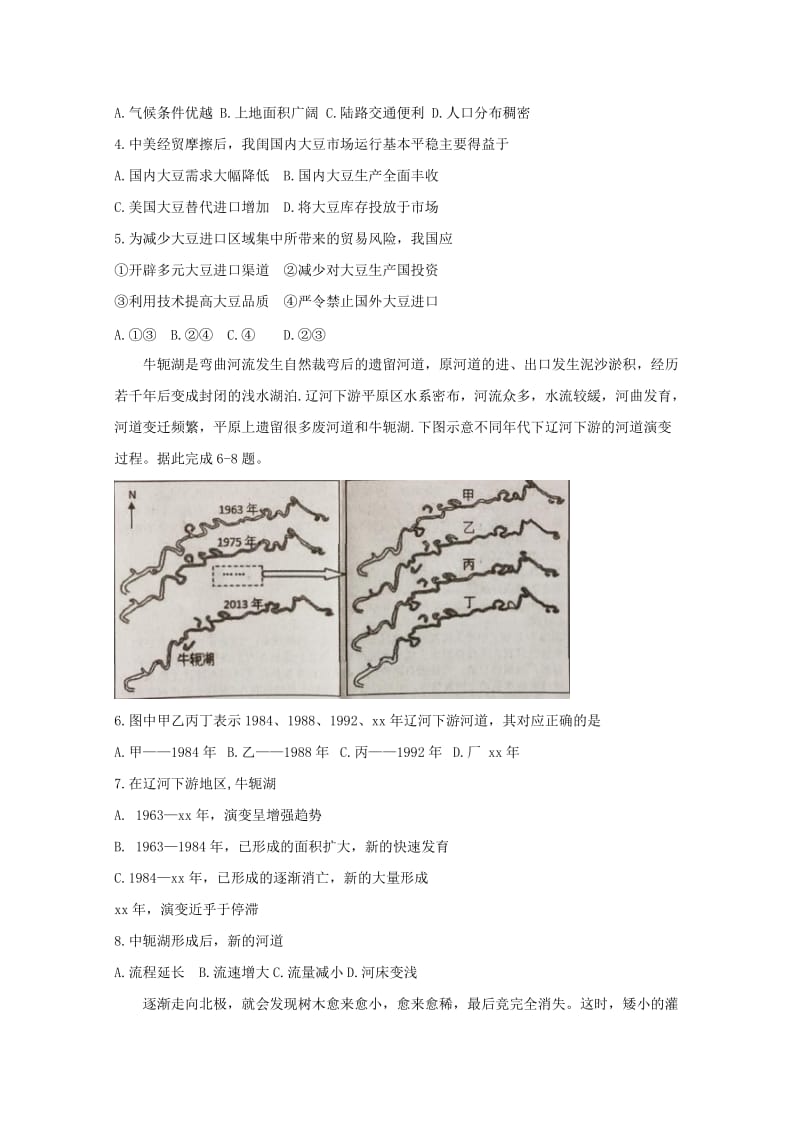 A.气候条件优越 B.上地面积广阔 C.陆路交通便利 D.人口分布稠密
4.中美经贸摩擦后，我闺国内大豆市场运行基本平稳主要得益于
A.国内大豆需求大幅降低 B.国内大豆生产全面丰收
C.美国大豆替代进口增加 D.将大豆库存投放于市场
5.为减少大豆进口区域集中所带来的贸易风险，我国应
①开辟多元大豆进口渠道 ②减少对大豆生产国投资
③利用技术提高大豆品质 ④严令禁止国外大豆进口
A.①③ B.②④ C.④ D.②③
牛轭湖是弯曲河流发生自然裁弯后的遗留河道，原河道的进、出口发生泥沙淤积，经历
若千年后变成封闭的浅水湖泊.辽河下游平原区水系密布，河流众多，水流较緩，河曲发育，
河道变迁频繁，平原上遗留很多废河道和牛轭湖.下图示意不同年代下辽河下游的河道演变
过程。据此完成 6-8 题。
N
1963 年
1975 年
……
2013 年
牛轭湖
甲
乙
丙
丁
6.图中甲乙丙丁表示 1984、1988、1992、xx 年辽河下游河道，其对应正确的是
A.甲——1984 年 B.乙——1988 年 C.丙——1992 年 D.厂 xx 年
7.在辽河下游地区,牛轭湖
A. 1963—xx 年，演变呈增强趋势
B. 1963—1984 年，已形成的面积扩大，新的快速发育
C.1984—xx 年，已形成的逐渐消亡，新的大量形成
xx 年，演变近乎于停滞
8.中轭湖形成后，新的河道
A.流程延长 B.流速增大 C.流量减小 D.河床变浅
逐渐走向北极，就会发现树木愈来愈小，愈来愈稀，最后竞完全消失。这时，矮小的灌